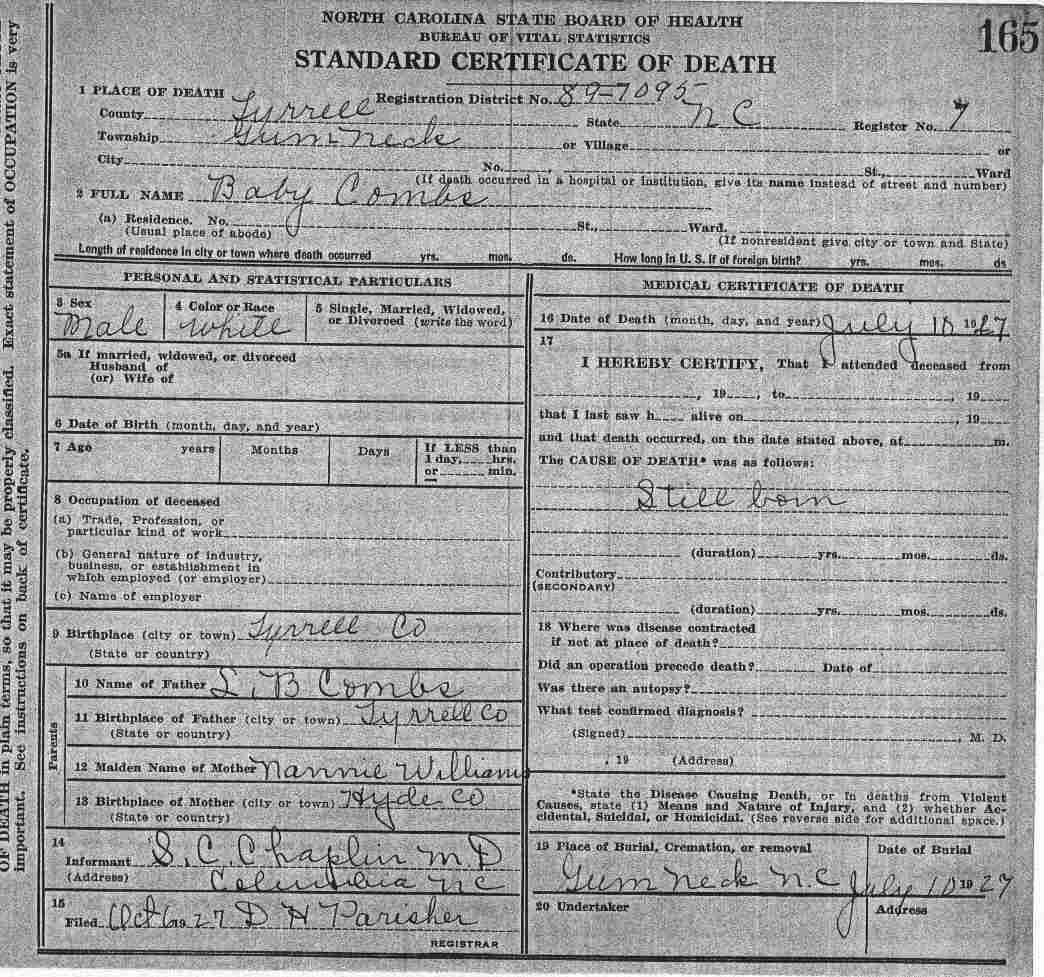 NORTH CAROLINA STATE BOARD OF HEALTH
BUREAU OF VITAL STATISTICS
STANDARD CERTIFICATE OF DEATH
165
1 PLACE OF DEATH Registration District No. 89-7095
County Tyrrell State N C Register No. 7
Township Gum Neck or Village or
City No. , St., Ward
(If death occurred in a hospital or institution, give its name instead of street and number)
2 FULL NAME Baby Combs
(a) Residence. No. St., Ward.
(Usual place of abode) (If nonresident give city or town and State)
Length of residence in city or town where death occurred yrs. mos. ds. How long in U. S. if of foreign birth? yrs. mos. ds
PERSONAL AND STATISTICAL PARTICULARS
3 Sex 4 Color or Race 5 Single, Married, Widowed,
or Divorced (write the word)
Male White
5a If married, widowed, or divorced
Husband of
(or) Wife of
6 Date of Birth (month, day, and year)
7 Age years Months Days If LESS than
1 day, hrs.
or min.
8 Occupation of deceased
(a) Trade, Profession, or
particular kind of work
(b) General nature of industry,
business, or establishment in
which employed (or employer)
(c) Name of employer
9 Birthplace (city or town) Tyrrell Co
(State or country)
Parents
10 Name of Father L. B Combs
11 Birthplace of Father (city or town) Tyrrell Co
(State or country)
12 Maiden Name of Mother Nannie Williams
13 Birthplace of Mother (city or town) Hyde Co
(State or country)
14
Informant S. C. Chaplin M D
(Address) Columbia NC
15
Filed Oct 6 1927 D H Parisher
REGISTRAR
MEDICAL CERTIFICATE OF DEATH
16 Date of Death (month, day, and year) July 10 1927
17
I HEREBY CERTIFY, That I attended deceased from
, 19 , to , 19
that I last saw h alive on , 19
and that death occurred, on the date stated above, at m.
The CAUSE OF DEATH* was as follows:
Still born
(duration) yrs. mos. ds.
Contributory
(SECONDARY)
(duration) yrs. mos. ds.
18 Where was disease contracted
if not at place of death?
Did an operation precede death? Date of
Was there an autopsy?
What test confirmed diagnosis?
(Signed) , M. D.
, 19 (Address)
*State the Disease Causing Death, or in deaths from Violent
Causes, state (1) Means and Nature of Injury, and (2) whether Ac-
cidental, Suicidal, or Homicidal. (See reverse side for additional space.)
19 Place of Burial, Cremation, or removal Date of Burial
Gum Neck N.C July 10 1927
20 Undertaker Address
OF DEATH in plain terms, so that it may be properly classified. Exact statement of OCCUPATION is very
important. See instructions on back of certificate.